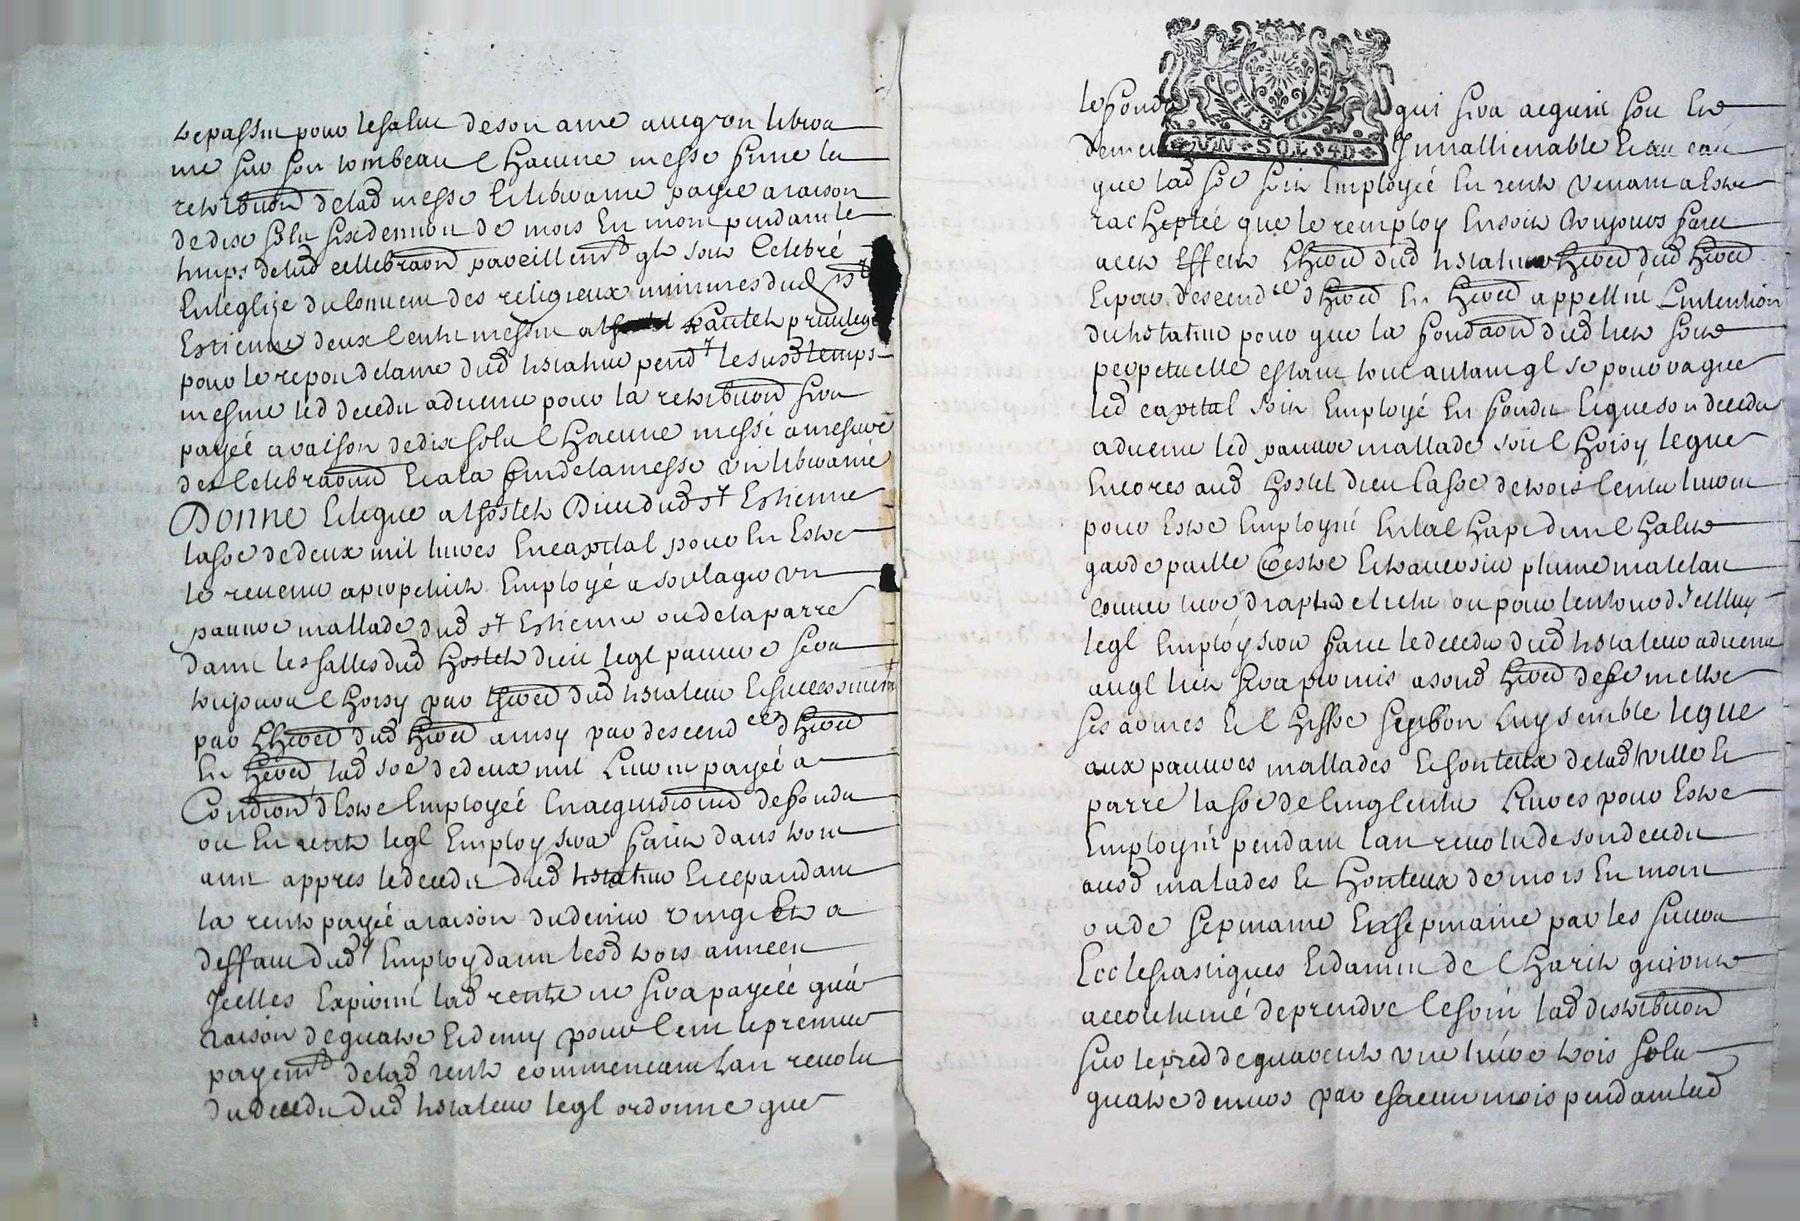 trepassez pour le salut de son ame avecq un libera
me sur son tombeau chacune messe finie la
retribuon de lad messe et libera me payee a raison
de dix solz six deniers de mois en mois pendant le
temps de lad cellebraon pareillemt ql soit celebré
en leglize du couvent des religieux minimes dud st
Estienne deux cents messes a lautel privilegié
pour le repos de lame dud testateur pendt le susd temps
mesme led deceds advenu pour la retribuon sera
payée a raison de dix solz chacune messe a mesure
des celebraons et a la fin de la messe un libera me
Donne et legue a lhostel Dieu dud st Estienne
la soe de deux mil livres en capital pour en estre
le revenu a perpetuité employé a soulager un
pauvre mallade dud st Estienne ou de la parre
dans les salles dud hostel dieu leql pauvre sera
toujours choisy par lhered dud testateur et successivemt
par lhered dud hered ainsy par descendce dhered
en hered lad soe de deux mil livres payée a
Condion destre employée en acquisions de fonds
ou en rente leql employ sera faict dans trois
ans appres le deceds dud testateur et cependant
la rente payée a raison du denier vingt et a
deffaut dud employ dans lesd trois années
Icelles expirés lad rente ne sera payéé qua
raison de quatre et demy pour cent le premier
payemt de lad rente commencant lan revolu
du deceds dud testateur leql ordonne que
le fonds qui sera acquis soit et
demeure Innallienable et au cas
que lad soe soit employéé en rente venant a estre
racheptéé que le remploy en soit toujours faict
a cet effect lhered dud testateur hered dud hered
et par descendce dhered en hered appellés Lintention
du testateur pour que la fondaon dud lict soit
perpetuelle estant tout autant ql se pourra que
led capital soit employé en fonds et que son deceds
advenu led pauvre mallade soit choisy legue
encores aud hostel dieu la soe de trois cents livres
pour estre employés en lachapt dun chalit
garde paille couette et traversin plume matelas
couverture draps et ou pour lentour dicelluy
leql employ sera faict le deceds dud testateur advenu
auql lict sera permis a sond hered de fe mettre
ses armes et chiffre sy bon luy semble legue
aux pauvres mallades et honteux de lad ville et
parre la soe de cinq cents livres pour estre
employés pendant lan revolu de son deceds
ausd malades et honteux de mois en mois
ou de sepmaine en sepmaine par les sieurs
Ecclesiastiques et dames de charité qui ont
accoutumé de prendre ce soin lad distribuon
sur le pied de quarente une livre trois solz
quatre deniers par chacun mois pendant led
VN · SOL · 4D